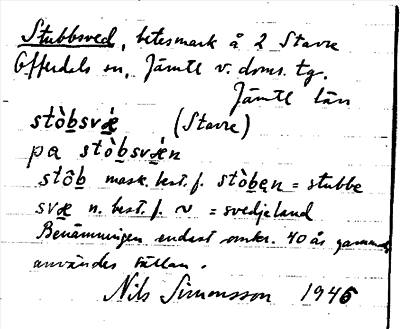 Stubbsved, betesmark å 2 Stavre
Offerdals sn, Jämtl v. doms. tg.
Jämtl län
stòbsvǽ (Stavre)
pa stòbsvǽn
stôb mask. best. f. stòben = stubbe
svæ n. best. f. ~ = svedjeland
Benämningen endast omkr. 40 år gammal
användes sällan.
Nils Simonsson 1946